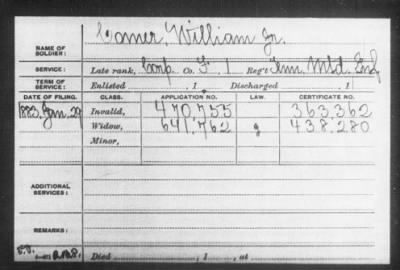 NAME OF SOLDIER: Comer, William Jr.
SERVICE: Late rank, Corp Co. F, 1 Reg't Tenn. Mtd. Inf
TERM OF SERVICE: Enlisted , 1 Discharged , 1
DATE OF FILING. CLASS. APPLICATION NO. LAW. CERTIFICATE NO.
1883, Jan. 29 Invalid, 470.755 363.362
Widow, 641.762 g 438.280
Minor,
ADDITIONAL SERVICES:
REMARKS:
Died , 1 , at